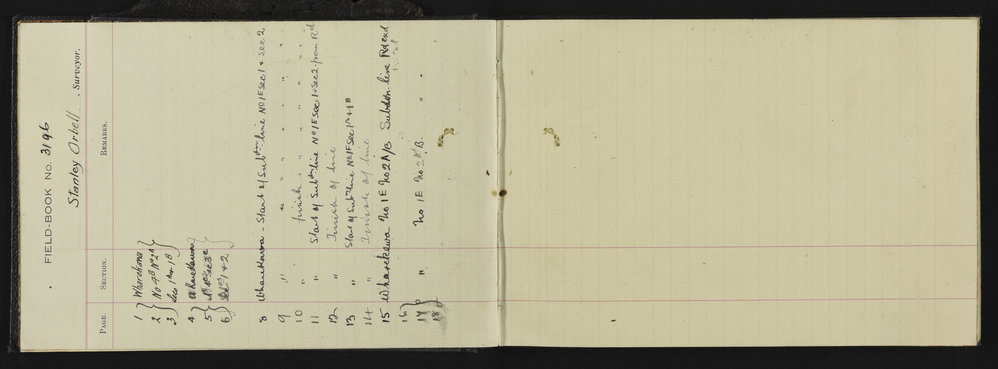 FIELD-BOOK No. 3196
Stanley Orbell, Surveyor.
PAGE. SECTION. REMARKS.
1 } Wharekawa
2 } No 4B No 2A
3 } Sec 1A + 1B
4 } Wharekawa
5 }
6 } 1 + 2
8 Wharekawa - Start of Subdn line No 1E Sec 1 + Sec 2
9 " " " " " " "
10 " finish " " " " "
11 " Start of Subdn line No 1E Sec 1 + Sec 2 from Rd
12 " Finish of line
13 " Start of Subn line No 1E Sec 1A + 1B
14 " Finish of line
15 Wharekawa No 1E No 2A/B Subdn line Rd end
16 }
17 } " No 1E No 2A/B. " "
18 }